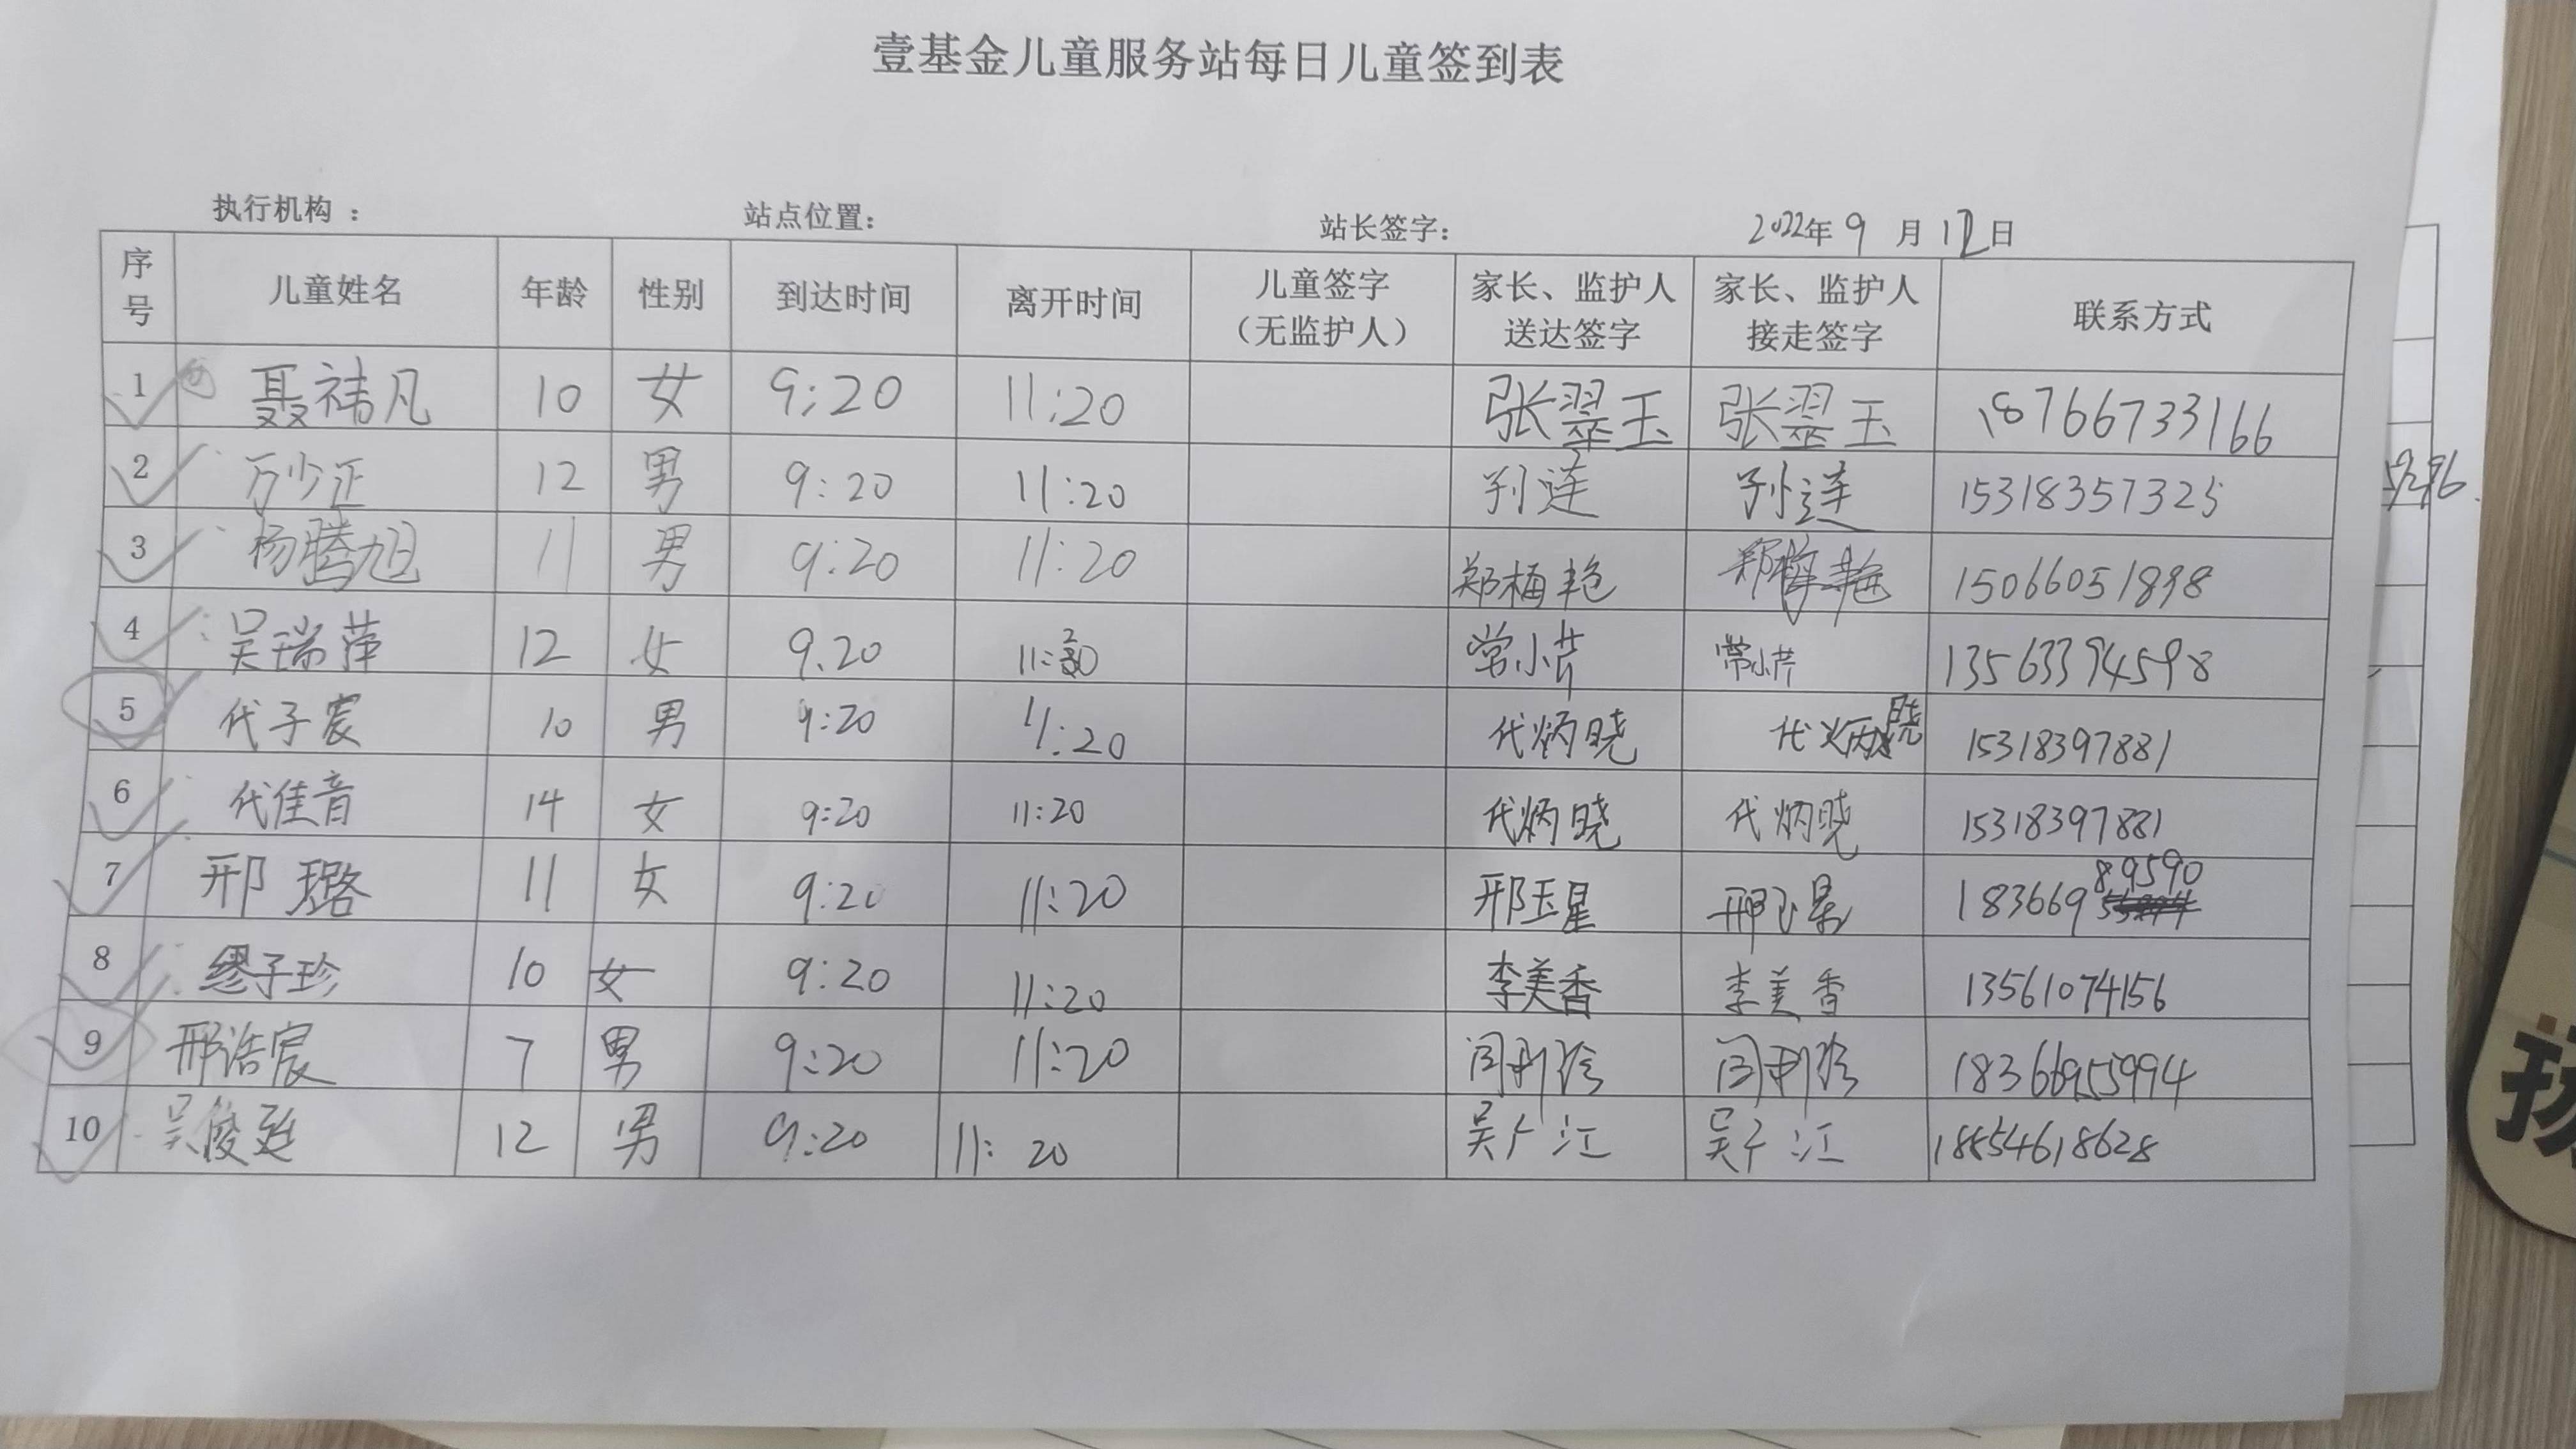 壹基金儿童服务站每日儿童签到表
执行机构 ： 站点位置： 站长签字： 2022年 9 月 12日
序号 儿童姓名 年龄 性别 到达时间 离开时间 儿童签字（无监护人） 家长、监护人送达签字 家长、监护人接走签字 联系方式
1 聂祎凡 10 女 9:20 11:20 张翠玉 张翠玉 18766733166
2 万少正 12 男 9:20 11:20 孙莲 孙莲 15318357325
3 杨腾旭 11 男 9:20 11:20 郑梅艳 郑梅艳 15066051898
4 吴瑞萍 12 女 9.20 11:20 常小芹 常小芹 13563394598
5 代子宸 10 男 9:20 11:20 代炳晓 代炳晓 15318397881
6 代佳音 14 女 9:20 11:20 代炳晓 代炳晓 15318397881
7 邢璐 11 女 9:20 11:20 邢玉星 邢玉星 18366989590
8 缪子珍 10 女 9:20 11:20 李美香 李美香 13561074156
9 邢浩宸 7 男 9:20 11:20 闫利珍 闫利珍 18366955994
10 吴俊廷 12 男 9:20 11:20 吴广江 吴广江 18854618628